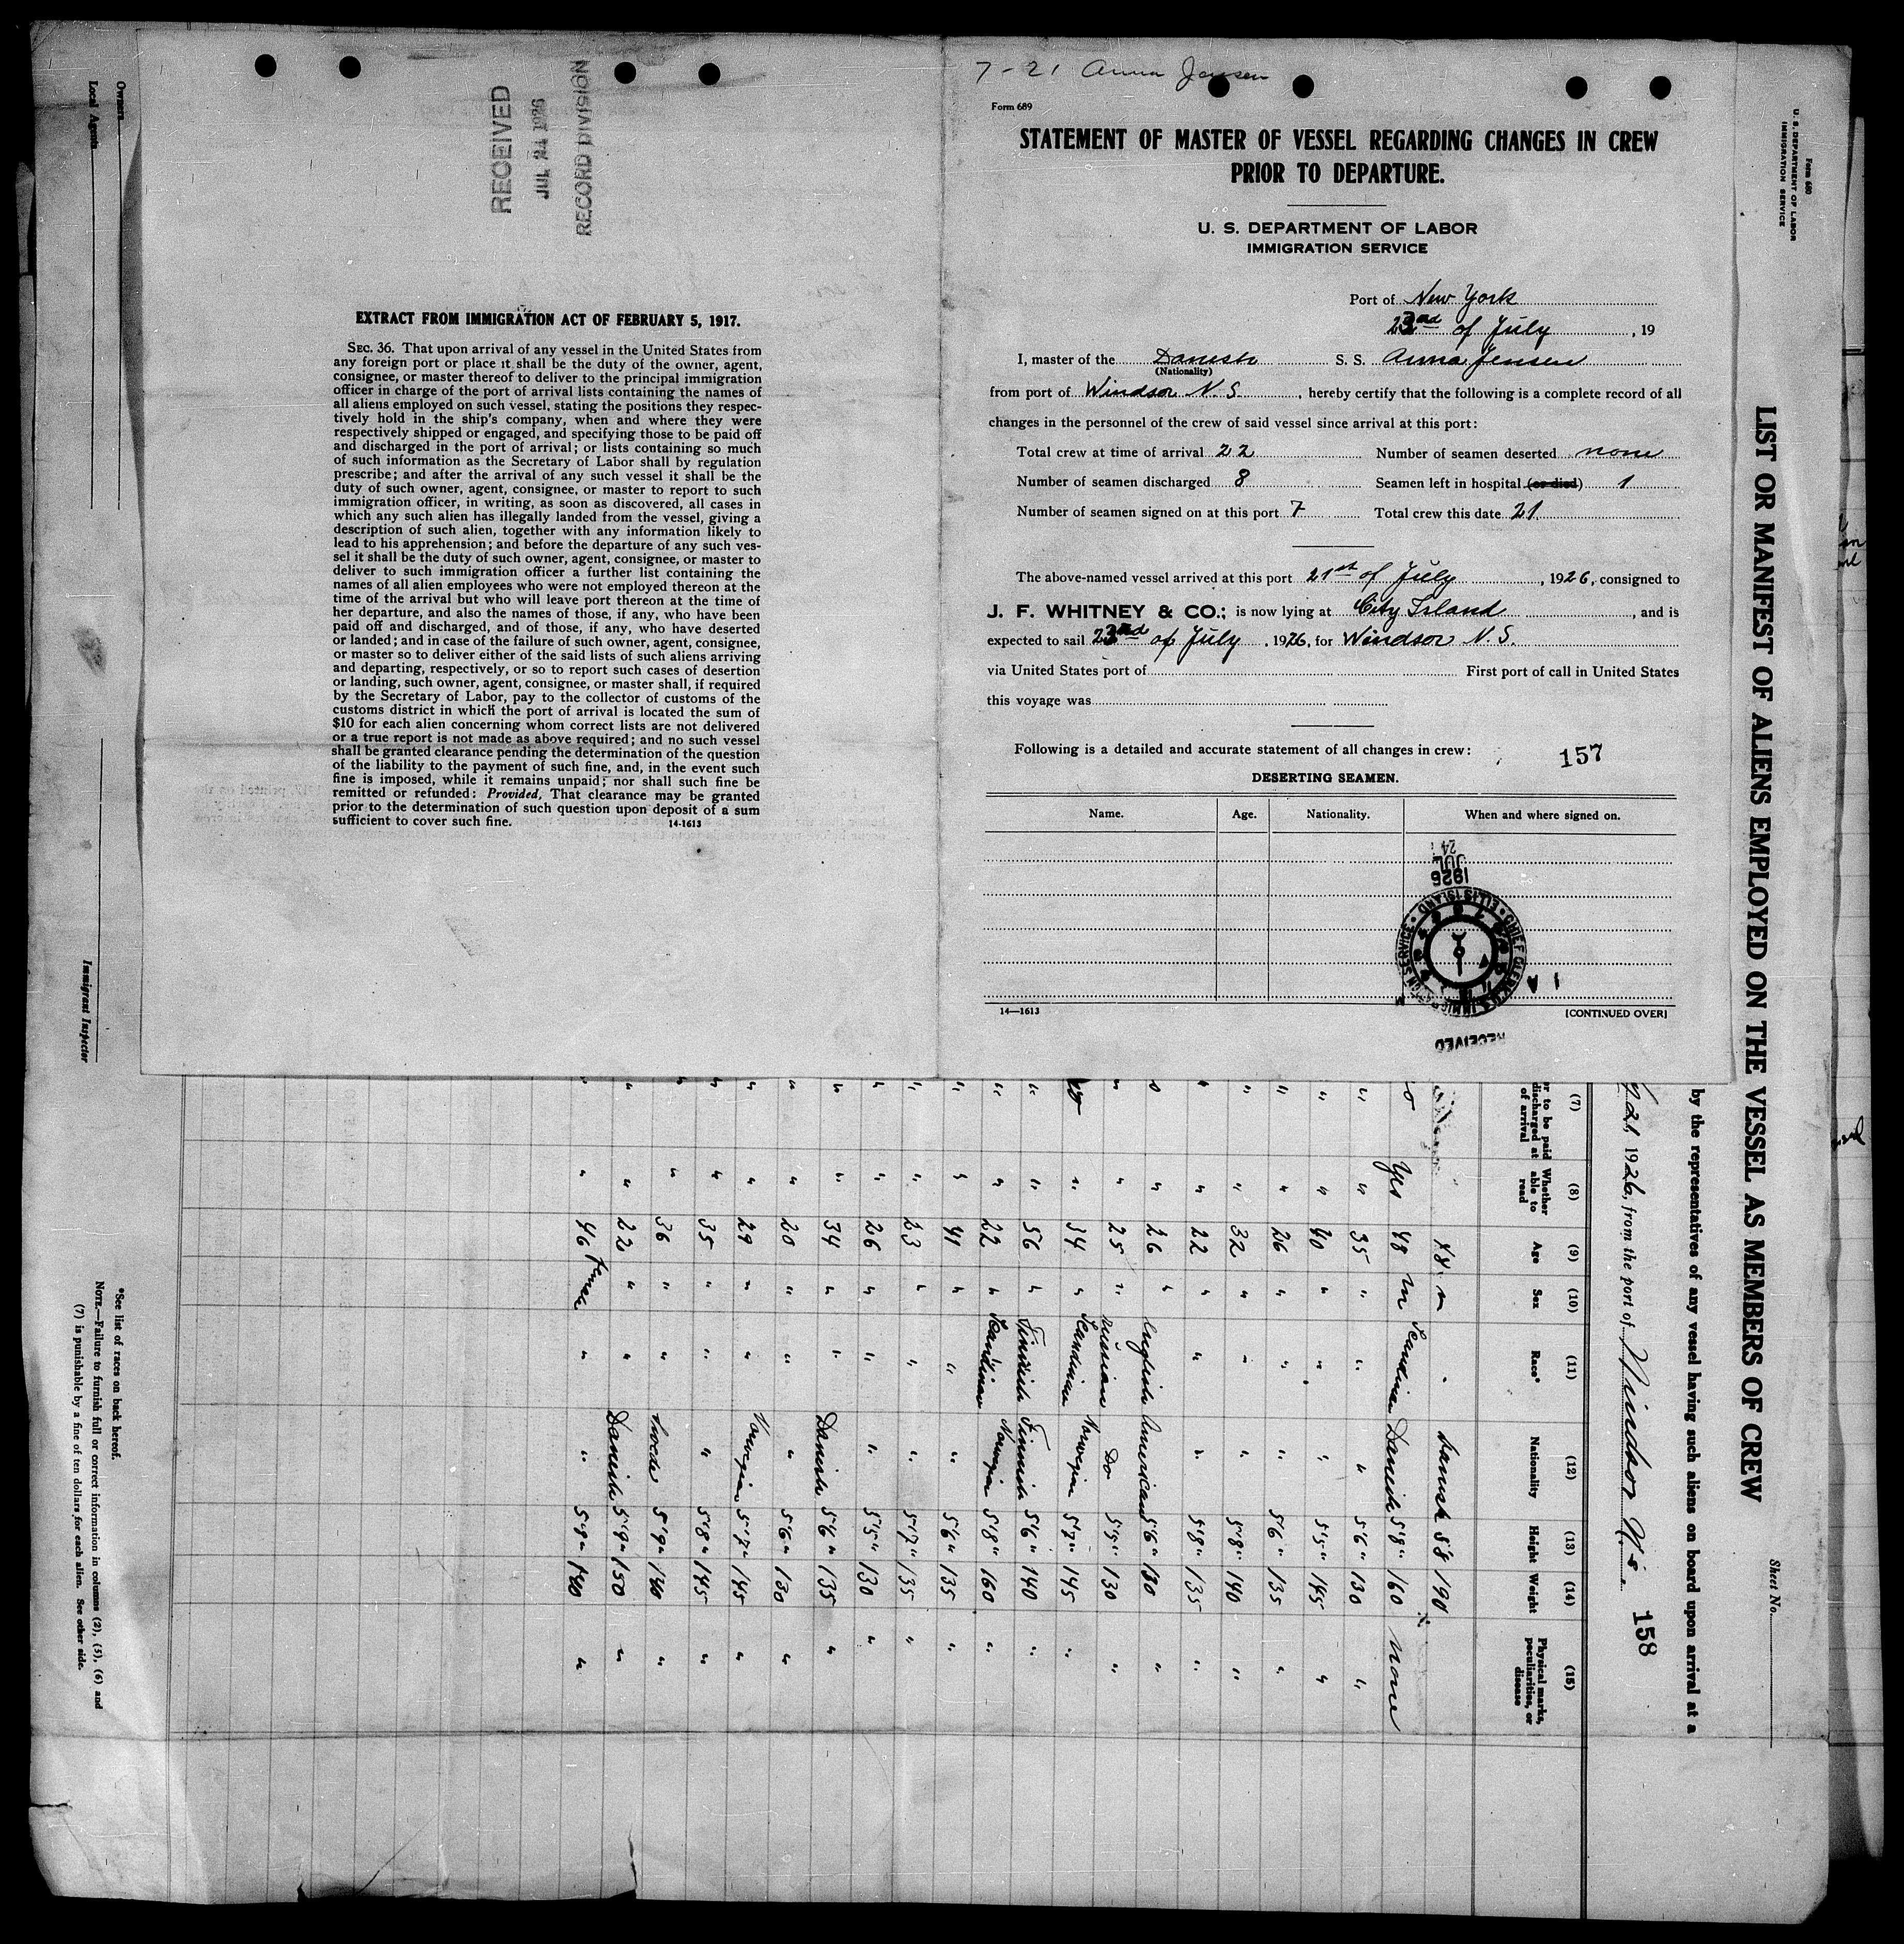 7-21 Anna Jensen
Form 689
STATEMENT OF MASTER OF VESSEL REGARDING CHANGES IN CREW
PRIOR TO DEPARTURE.
U. S. DEPARTMENT OF LABOR
IMMIGRATION SERVICE
Port of New York
23rd of July, 19
I, master of the Danish S. S. Anna Jensen
(Nationality)
from port of Windsor N. S., hereby certify that the following is a complete record of all
changes in the personnel of the crew of said vessel since arrival at this port:
Total crew at time of arrival 22 Number of seamen deserted none
Number of seamen discharged 8 Seamen left in hospital (or died) 1
Number of seamen signed on at this port 7 Total crew this date 21
The above-named vessel arrived at this port 21st of July, 1926, consigned to
J. F. WHITNEY & CO.; is now lying at City Island, and is
expected to sail 23rd of July, 1926, for Windsor N. S.
via United States port of First port of call in United States
this voyage was
Following is a detailed and accurate statement of all changes in crew:
157
DESERTING SEAMEN.
Name. Age. Nationality. When and where signed on.
1926
JUL
24
CHIEF CLERK U.S. IMMIGRATION SERVICE • ELLIS ISLAND •
RECEIVED
14—1613 [CONTINUED OVER]
RECEIVED
JUL 24 1926
RECORD DIVISION
EXTRACT FROM IMMIGRATION ACT OF FEBRUARY 5, 1917.
SEC. 36. That upon arrival of any vessel in the United States from
any foreign port or place it shall be the duty of the owner, agent,
consignee, or master thereof to deliver to the principal immigration
officer in charge of the port of arrival lists containing the names of
all aliens employed on such vessel, stating the positions they respec-
tively hold in the ship's company, when and where they were
respectively shipped or engaged, and specifying those to be paid off
and discharged in the port of arrival; or lists containing so much
of such information as the Secretary of Labor shall by regulation
prescribe; and after the arrival of any such vessel it shall be the
duty of such owner, agent, consignee, or master to report to such
immigration officer, in writing, as soon as discovered, all cases in
which any such alien has illegally landed from the vessel, giving a
description of such alien, together with any information likely to
lead to his apprehension; and before the departure of any such ves-
sel it shall be the duty of such owner, agent, consignee, or master to
deliver to such immigration officer a further list containing the
names of all alien employees who were not employed thereon at the
time of the arrival but who will leave port thereon at the time of
her departure, and also the names of those, if any, who have been
paid off and discharged, and of those, if any, who have deserted
or landed; and in case of the failure of such owner, agent, consignee,
or master so to deliver either of the said lists of such aliens arriving
and departing, respectively, or so to report such cases of desertion
or landing, such owner, agent, consignee, or master shall, if required
by the Secretary of Labor, pay to the collector of customs of the
customs district in which the port of arrival is located the sum of
$10 for each alien concerning whom correct lists are not delivered
or a true report is not made as above required; and no such vessel
shall be granted clearance pending the determination of the question
of the liability to the payment of such fine, and, in the event such
fine is imposed, while it remains unpaid; nor shall such fine be
remitted or refunded: Provided, That clearance may be granted
prior to the determination of such question upon deposit of a sum
sufficient to cover such fine.
14-1613
Form 680
U. S. DEPARTMENT OF LABOR
IMMIGRATION SERVICE
LIST OR MANIFEST OF ALIENS EMPLOYED ON THE VESSEL AS MEMBERS OF CREW
Sheet No.
by the representatives of any vessel having such aliens on board upon arrival at a
21, 1926, from the port of Windsor N.S.
158
(7) (8) (9) (10) (11) (12) (13) (14) (15)
or to be paid discharged at of arrival Whether able to read Age Sex Race* Nationality Height Weight Physical marks, peculiarities, or disease
48 m " Danish 5'8 190
Yes 48 m Scandina Danish 5'8" 160 None
" " 35 " " " 5'6" 130 "
" " 40 " " " 5'5" 145 "
" " 26 " " " 5'6" 135 "
" " 32 " " " 5'8" 140 "
" " 22 " " " 5'8" 135 "
" 26 " English American 5'6" 130 "
" " 25 " Russian Do 5'5" 130 "
" 34 " Scandinav Norwegian 5'7" 145 "
" " 56 " Finnish Finnish 5'6" 140 "
" " 22 " Scandinav Norwegian 5'8" 160 "
" " 41 " " " 5'6" 135 "
" " 23 " " " 5'7" 135 "
" " 26 " " " 5'5" 130 "
" " 34 " " Danish 5'6" 135 "
" " 20 " " " 5'6" 130 "
" " 29 " " Norwegian 5'7" 145 "
" " 35 " " " 5'8" 145 "
" " 36 " " Swede 5'9" 140 "
" " 22 " " Danish 5'9" 150 "
" " 46 " " 5'9" 140 "
*See list of races on back hereof.
NOTE.—Failure to furnish full or correct information in columns (2), (5), (6) and
(7) is punishable by a fine of ten dollars for each alien. See other side.
Owners
Local Agents
Immigrant Inspector